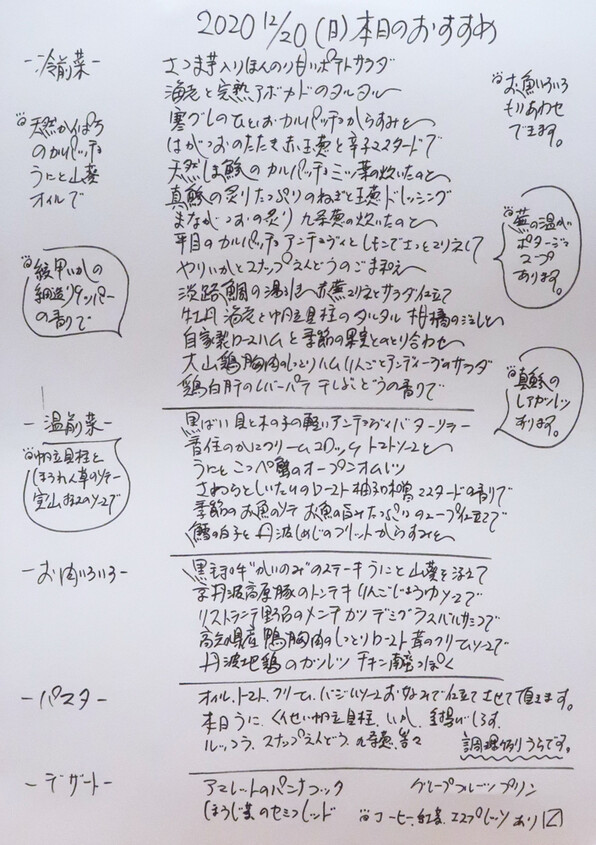 2020 12/20 (日) 本日のおすすめ
-冷前菜-
さつま芋入りほんのり甘いポテトサラダ
海老と完熟アボカドのタルタル
寒ブリのひといお カルパッチョ からすみと
はがつおのたたき 赤玉葱と辛子マスタードで
天然しま鯵のカルパッチョ ミツ葉の炊いたのと
真鯵の炙り たっぷりのねぎと玉葱ドレッシング
まながつおの炙り 九条葱の炊いたのと
平目のカルパッチョ アンチョヴィとレモンでさっとマリネして
やりいかとスナップえんどうのごま和え
淡路鯛の湯引き 赤蕪マリネとサラダ仕立て
牡丹海老と帆立貝柱のタルタル 柑橘の泡と
自家製ロースハムと季節の果実とのとり合わせ
大山鶏胸肉のしっとりハム りんごとアンディーブのサラダ
鶏白肝のレバーパテ 干しぶどうの香りで
天然かんぱち
のカルパッチョ
うにと山葵
オイルで
紋甲いかの
細造り ケッパー
の香りで
お魚いろいろ
もりあわせ
できます。
蕪の温かい
ポタージュ
スープ
あります。
真鯵の
レアカツレツ
あります。
-温前菜-
黒ばい貝と木の子の軽いアンチョヴィバターソテー
香住のかにクリームコロッケ トマトソースと
うにと こっぺ蟹のオープンオムレツ
さわらとしいたけのロースト 柚子の香 マスタードの香りで
季節のお魚のソテー お魚の旨みたっぷりのスープ仕立てで
鱈の白子と丹波しめじのフリット からすみと
帆立貝柱と
ほうれん草のソテー
実山椒のソースで
-お肉いろいろ-
黒毛和牛“かいのみ”のステーキ うにと山葵を添えて
京丹波高原豚のトンテキ りんごじょうゆソースで
リストランテ野呂のメンチカツ デミグラスバルサミコで
高知県産鴨胸肉のしっとりロースト 茸のクリームソースで
丹波地鶏のカツレツ チキン南蛮っぽく
-パスタ-
オイル、トマト、クリーム、バジルソース お好みで仕立てさせて頂きます。
本日 うに、くんせい帆立貝柱、いか、釜揚げしらす、
ルッコラ、スナップえんどう、九条葱、等々
調理例 うらです。
-デザート-
アマレットのパンナコッタ
グレープフルーツプリン
ほうじ茶のセミフレッド
コーヒー、紅茶、エスプレッソ あり〼